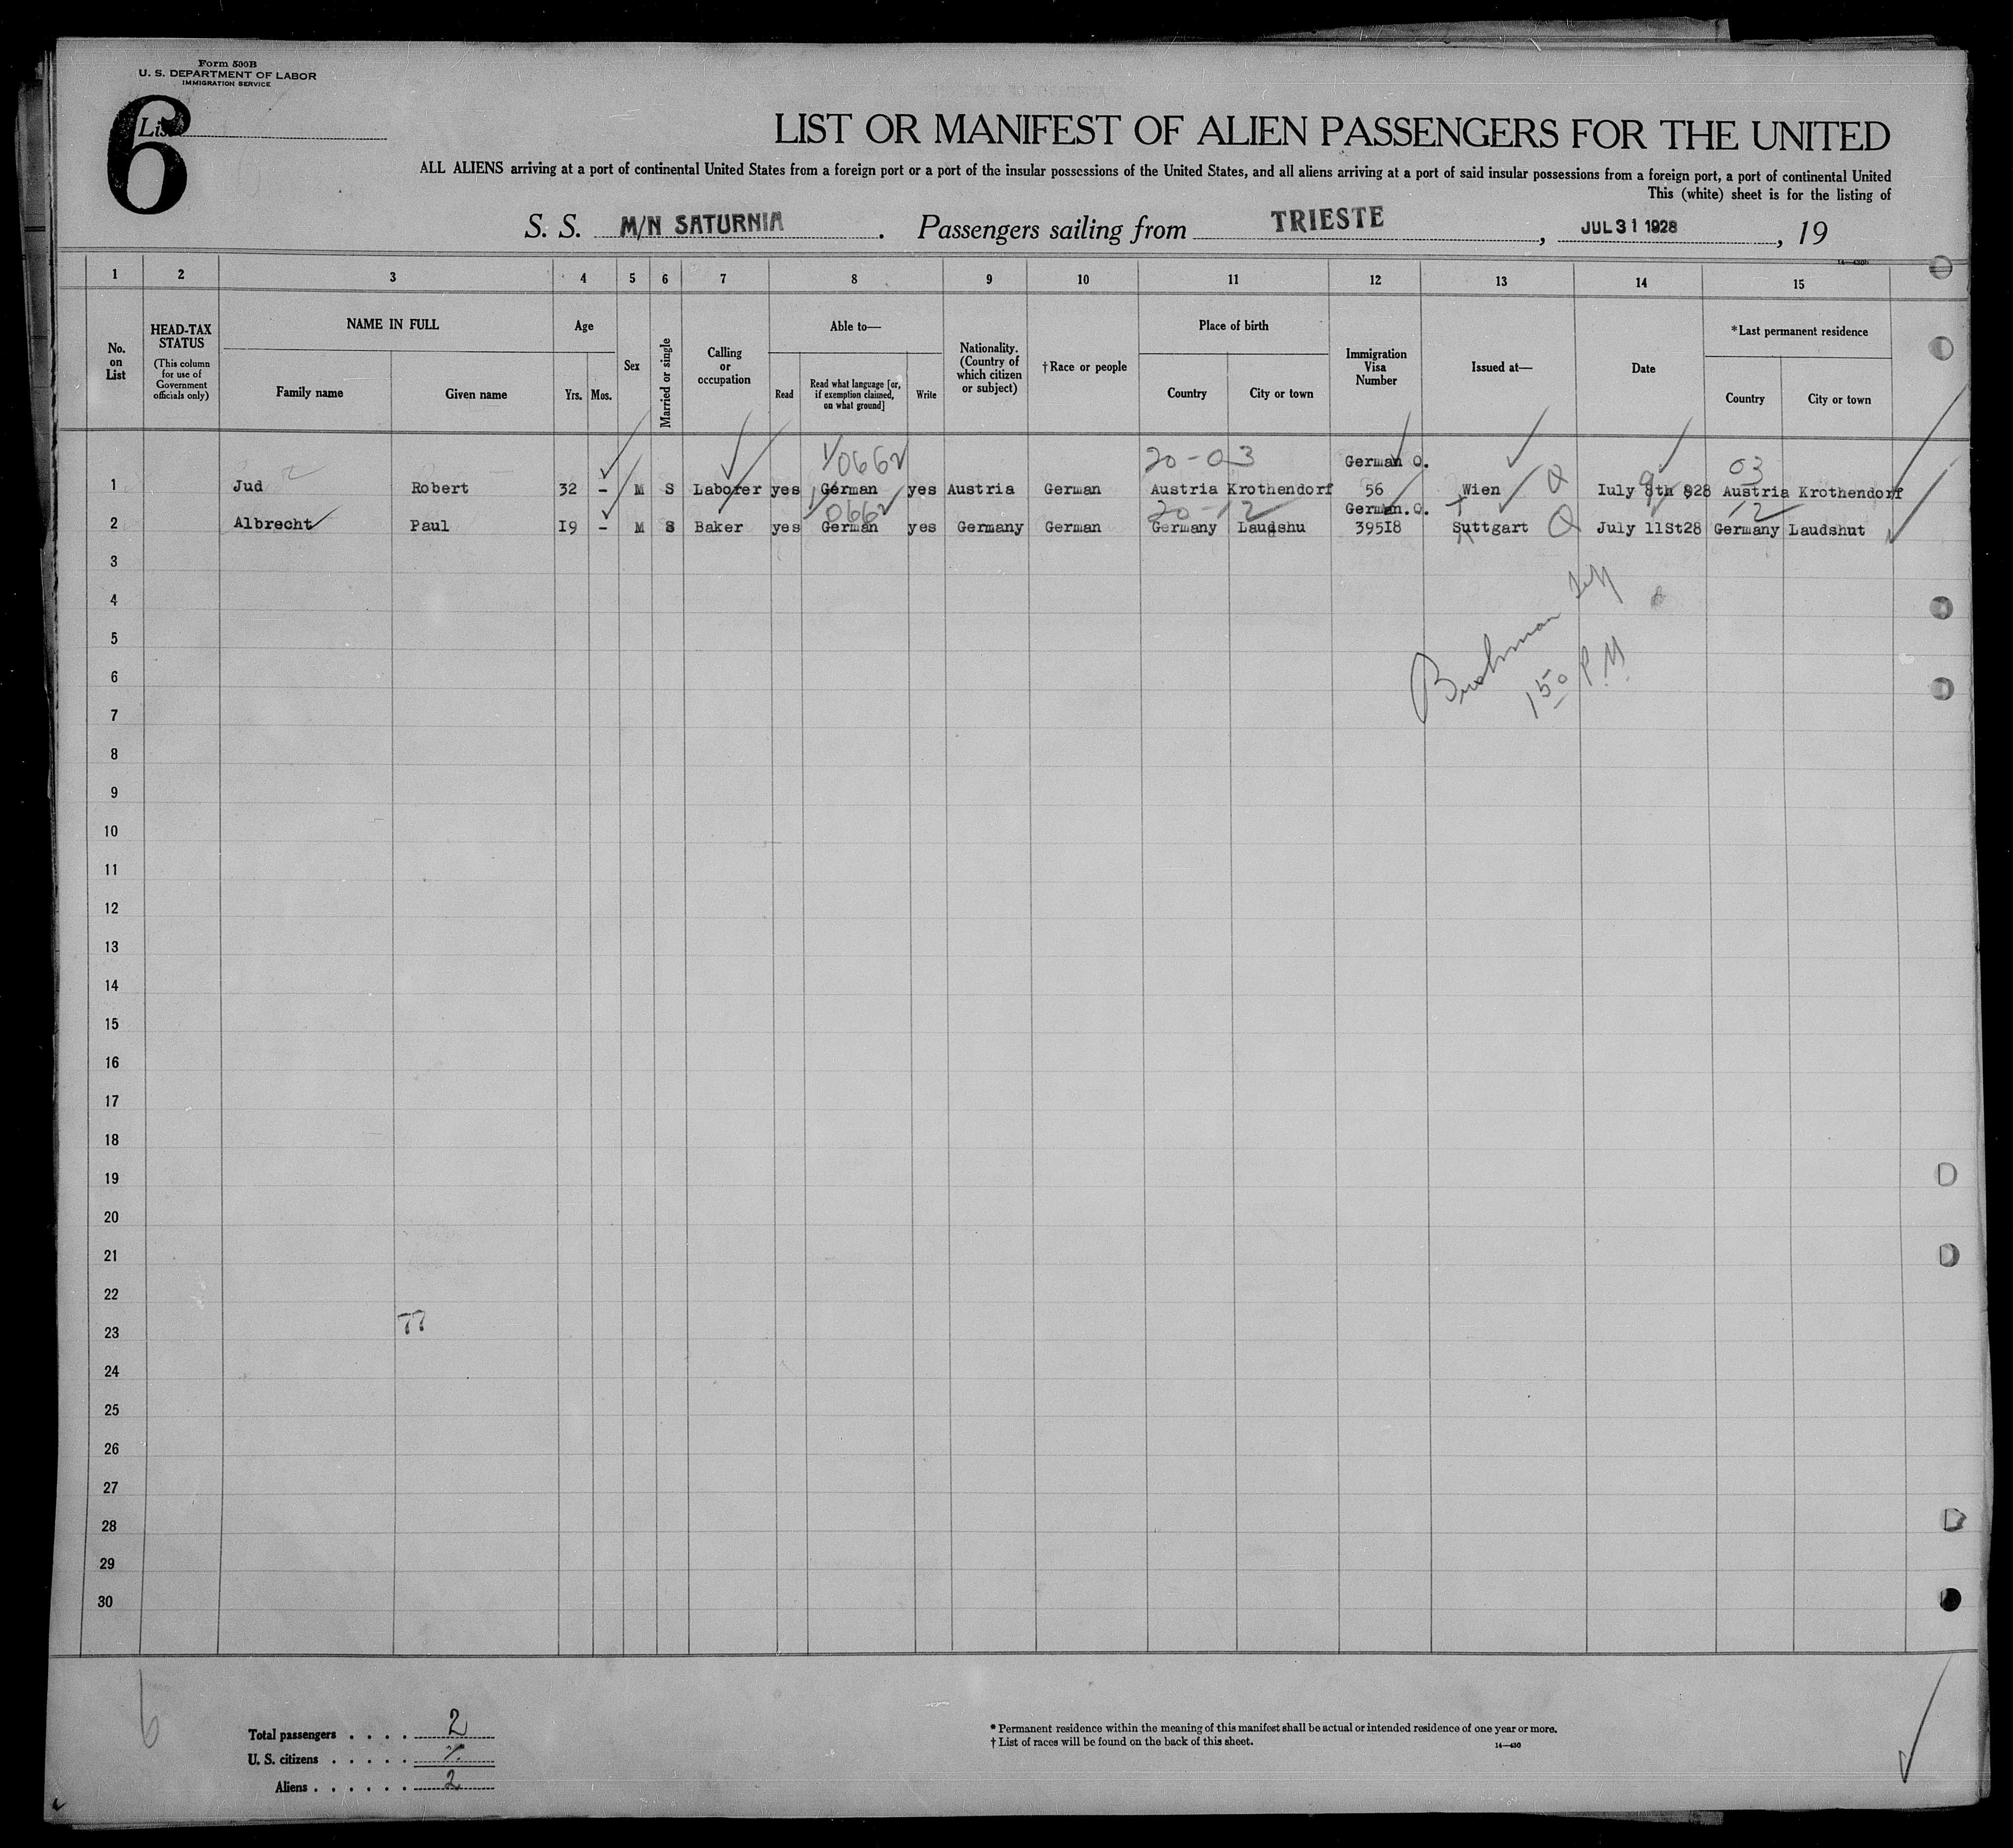 Form 500B
U. S. DEPARTMENT OF LABOR
IMMIGRATION SERVICE
List
6
LIST OR MANIFEST OF ALIEN PASSENGERS FOR THE UNITED
ALL ALIENS arriving at a port of continental United States from a foreign port or a port of the insular possessions of the United States, and all aliens arriving at a port of said insular possessions from a foreign port, a port of continental United
This (white) sheet is for the listing of
S. S. M/N SATURNIA . Passengers sailing from TRIESTE , JUL 31 1928 , 19
14—430b
1 2 3 4 5 6 7 8 9 10 11 12 13 14 15
No. on List
HEAD-TAX STATUS
(This column for use of Government officials only)
NAME IN FULL
Family name Given name
Age
Yrs. Mos.
Sex
Married or single
Calling or occupation
Able to—
Read
Read what language [or, if exemption claimed, on what ground]
Write
Nationality. (Country of which citizen or subject)
†Race or people
Place of birth
Country City or town
Immigration Visa Number
Issued at—
Date
*Last permanent residence
Country City or town
10662 20-03 German Q. 03
1 Jud Robert 32 - M S Laborer yes German yes Austria German Austria Krothendorf 56 Wien Q Iuly 8th 928 Austria Krothendorf
0662 20-12 German.Q. 12
2 Albrecht Paul I9 - M S Baker yes German yes Germany German Germany Laudshu 395I8 Suttgart Q July 11St28 Germany Laudshut
3
4
5
6
150 P.M.
7
8
9
10
11
12
13
14
15
16
17
18
19
20
21
22
23
24
25
26
27
28
29
30
6
Total passengers . . . . 2
U. S. citizens . . . . .
Aliens . . . . . . 2
* Permanent residence within the meaning of this manifest shall be actual or intended residence of one year or more.
† List of races will be found on the back of this sheet.
14—430